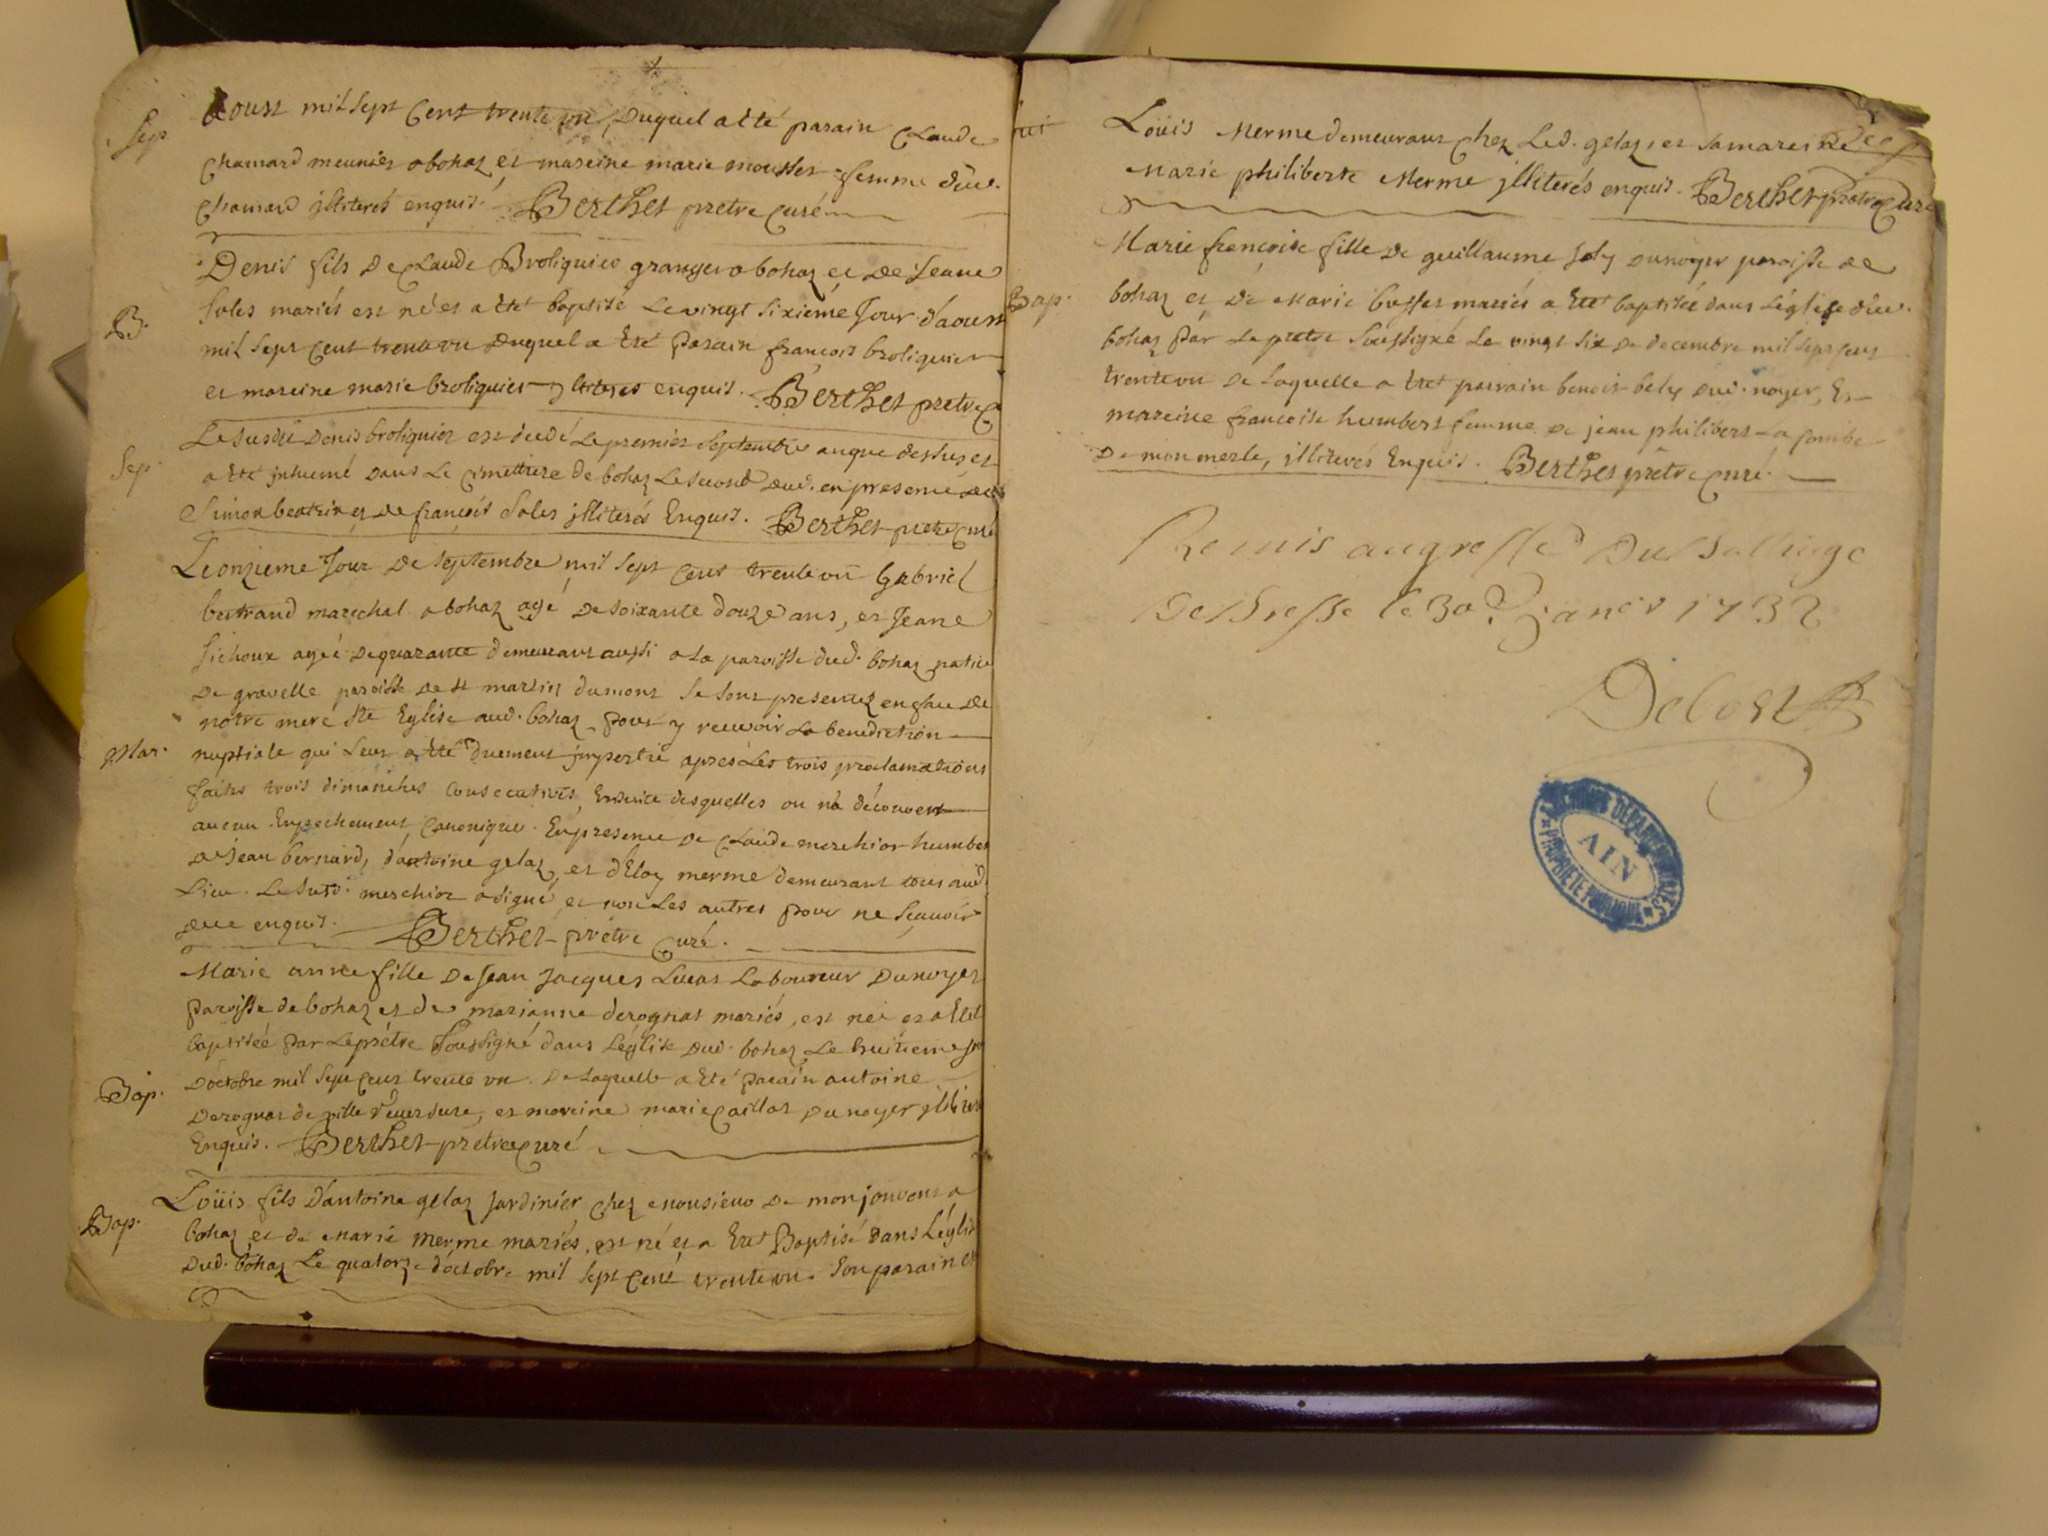 Sep.
Aoust mil sept cent trente un, Duquel a été parain Claude
Chamard meunier a bohaz et mareine marie mousset femme dud.
Chamard jlliterés enquis. Berthet prêtre Curé
B.
Denis fils De Claude Broliquier granger a bohaz et De Jeane
Soles mariés est né et a été baptisé Le vingt sixiéme Jour d'aoust
mil sept cent trente un Duquel a été Parain francois broliquier
et mareine marie broliquier jlliteres enquis. Berthet pretre C
Sep.
Le susdit Denis broliquier est decedé Le premier septembre an que dessus et
a été jnhumé Dans Le Cimettiere de bohaz Le second Dud. en presence de
Simon beatrix et De francois Soles jlliterés Enquis. Berthet pretre Curé
Mar.
Le onzieme Jour De septembre mil sept cent trente un Gabriel
bertrand marechal a bohaz agé De soixante douze ans, et Jeane
Sichoux ageé De quarante demeurant aussi a La paroisse dud. bohaz native
De gravelle paroisse De st martin dumont se sont presentez en face De
notre mere Ste Eglise aud. bohaz pour y recevoir La benediction
nuptiale qui Leur a été Duement jmpertie apres Les trois proclamations
faites trois dimanches Consecutives, Ensuite desquelles on n'a découvert
aucun Empechement Canonique. En presence De Claude merchior humbert
De Jean bernard, d'antoine gelaz, et d'Eloy merme demeurant tous aud.
Lieu. Le susd. merchior a signé et non Les autres pour ne sçauoir
De ce enquis. Berthet prêtre Curé.
Bap.
Marie anne fille De Jean Jacques Lucas Laboureur Du noyer
Paroisse de bohaz et de marianne derognat mariés, est neé et a été
baptiseé par Le prêtre soussigné dans L'église Dud. bohaz Le huitieme jr
D'octobre mil sept cent trente un. De Laquelle a été parain antoine
Derognat de ville reuersure, et mareine marie Caillat Du noyer jlliterés
Enquis. Berthet prêtre Curé
Bap.
Loüis fils d'antoine gelaz Jardinier Chez monsieur De monjouvent a
bohaz et de marie merme mariés, est né et a été Baptisé Dans L'église
Dud. bohaz Le quatorze d'octobre mil sept cent trente un. Son parain et
Loüis Merme demeurant Chez Led. gelaz, et sa mareine
Marie philiberte Merme jlliterés enquis. Berthet prêtre Curé
Bap.
Marie françoise fille De guillaume Joly Du noyer paroisse de
bohaz et De Marie buffet mariés a été baptisée dans L'église dud.
bohaz Par Le pretre Soussigné Le vingt six De decembre mil sept cent
trente un De Laquelle a été parrain benoit bely Dud. noyer, Et
mareine francoise humbert femme De jean philibert La combe
De mon merle, jlliterés Enquis. Berthet prêtre Curé.
Remis au greffe Du Balliage
De Bresse le 30e Janvr 1732
Delorst
ARCHIVES DÉPARTEMENTALES
AIN
PROPRIÉTÉ PUBLIQUE